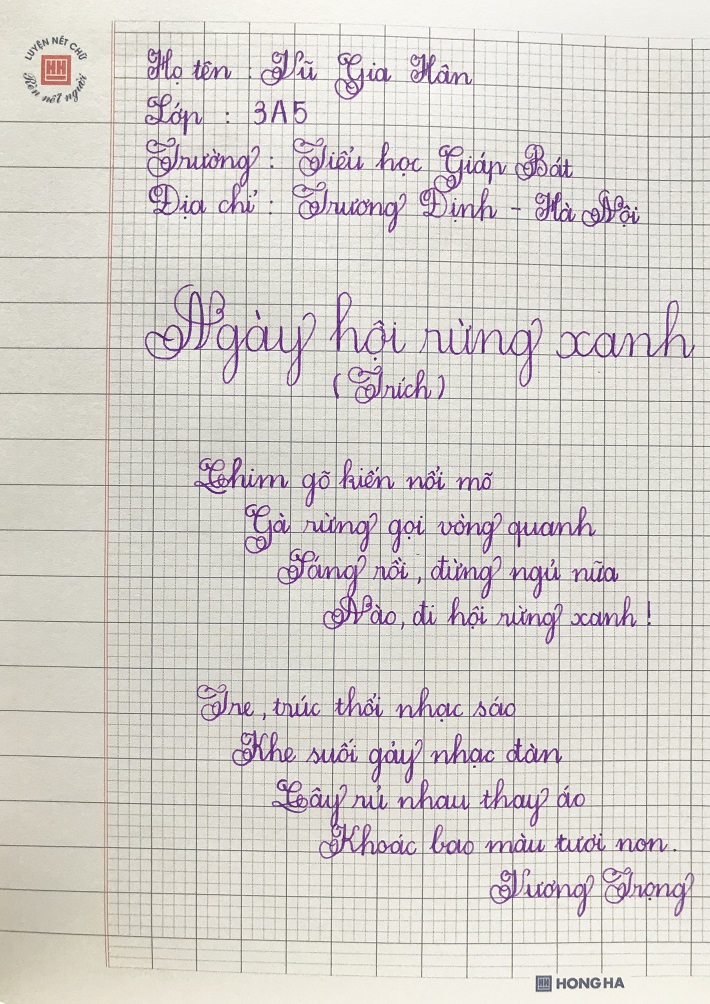 LUYỆN NÉT CHỮ
HH
Rèn nết người
Họ tên : Vũ Gia Hân
Lớp : 3A5
Trường : Tiểu học Giáp Bát
Địa chỉ : Trương Định - Hà Nội
Ngày hội rừng xanh
(Trích)
Chim gõ kiến nổi mõ
Gà rừng gọi vòng quanh
Sáng rồi, đừng ngủ nữa
Nào, đi hội rừng xanh !
Tre, trúc thổi nhạc sáo
Khe suối gảy nhạc đàn
Cây rủ nhau thay áo
Khoác bao màu tươi non.
Vương Trọng
HH HONG HA